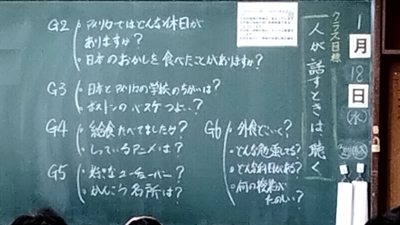 G2
・アメリカではどんな休日が
ありますか?
・日本のおかしを食べたことがありますか?
G3
・日本とアメリカの学校のちがいは?
・ボストンのバスケつよい?
G4
・給食たべてましたか?
・しっているアニメは?
G5
・好きなユーチューバー?
・かんこう名所は?
G6
・外食どこいく?
・どんな勉強してる?
・どんな科目がある?
・何の授業が
たのしい?
クラス目標
人が話すときは聴く
1
月
18
日
(水)